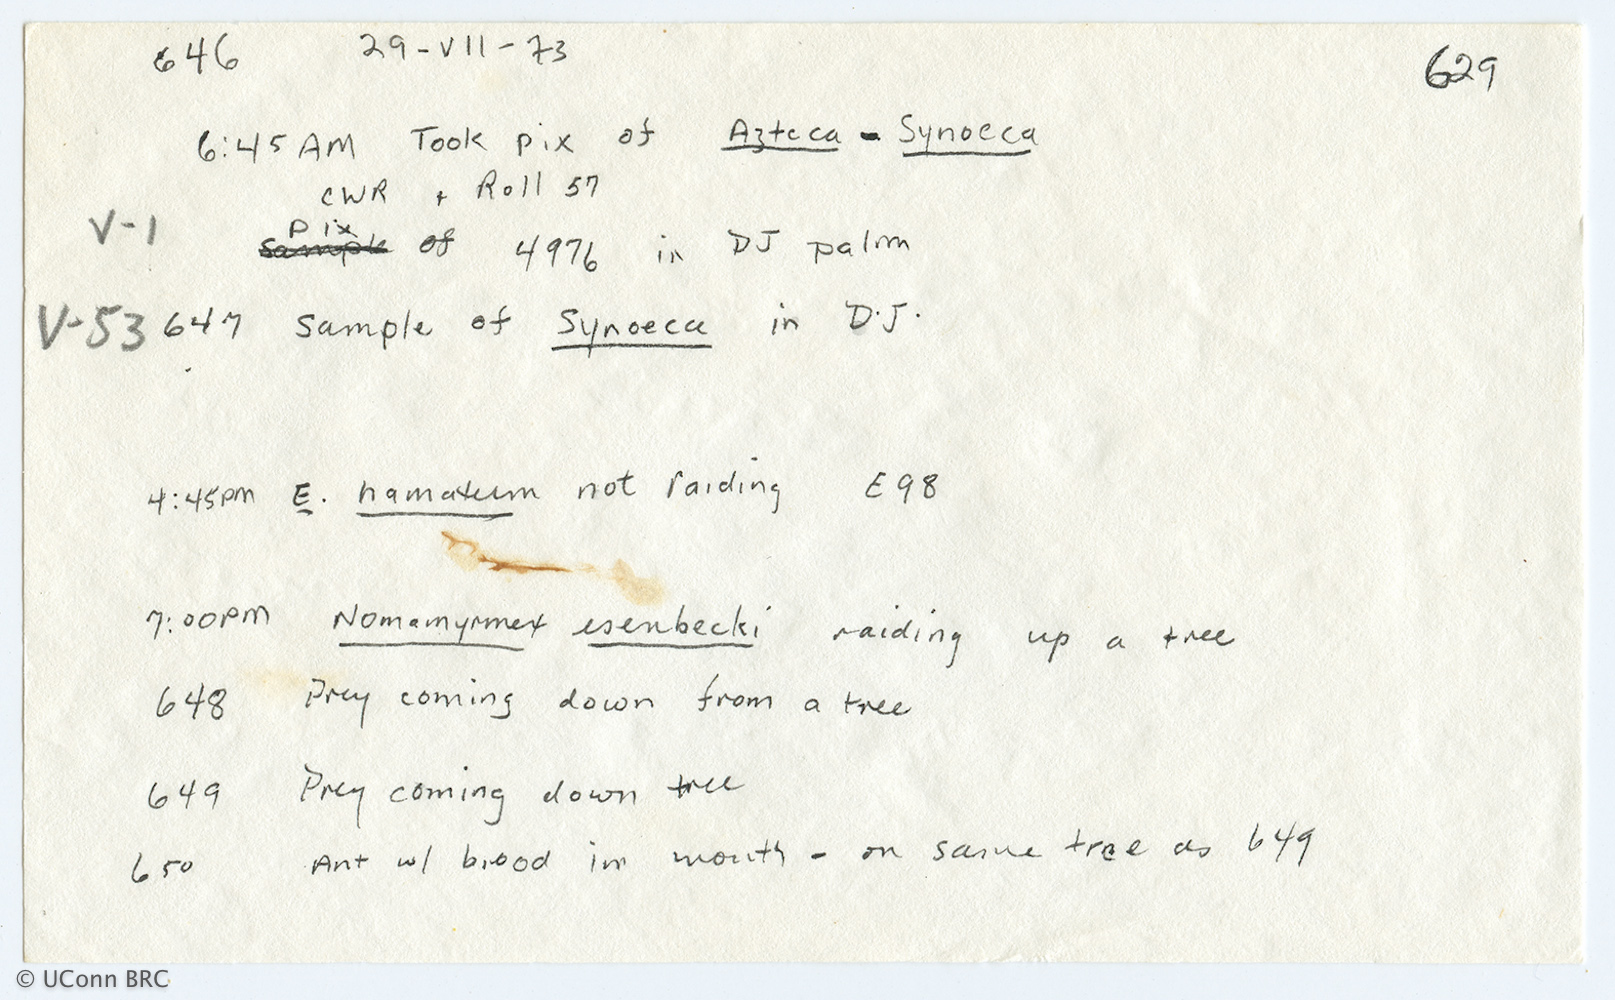 646 29-VII-73 629
6:45 AM Took pix of Azteca - Synoeca
CWR + Roll 57
V-1 pix
sample of 4976 in DJ palm
V-53 647 Sample of Synoeca in D.J.
4:45pm E. hamatum not raiding E98
7:00PM Nomamyrmex esenbecki raiding up a tree
648 Prey coming down from a tree
649 Prey coming down tree
650 Ant w/ brood in mouth - on same tree as 649
© UConn BRC